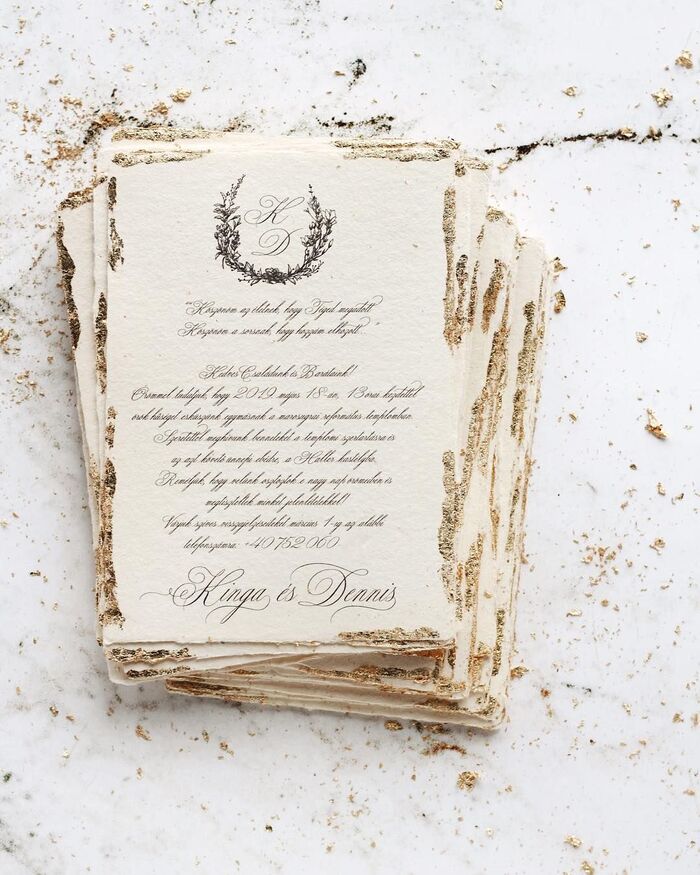 K
D
"Köszönöm az életnek, hogy Téged megadott
Köszönöm a sorsnak, hogy hozzám elhozott... "
Kedves Családunk és Barátaink!
Örömmel tudatjuk, hogy 2019 május 18-án, 13 órai kezdettel
örök hűséget esküszünk egymásnak a marosugrai református templomban.
Szeretettel meghívunk benneteket a templomi szertartásra és
az azt követő ünnepi ebédre, a Haller kastélyba.
Reméljük, hogy velünk osztoztok e nagy nap örömeiben és
megtiszteltek minket jelenlétetekkel!
Várjuk szíves visszajelzéseteket március 1-ig az alábbi
telefonszámra: +40 752 060
Kinga és Dennis